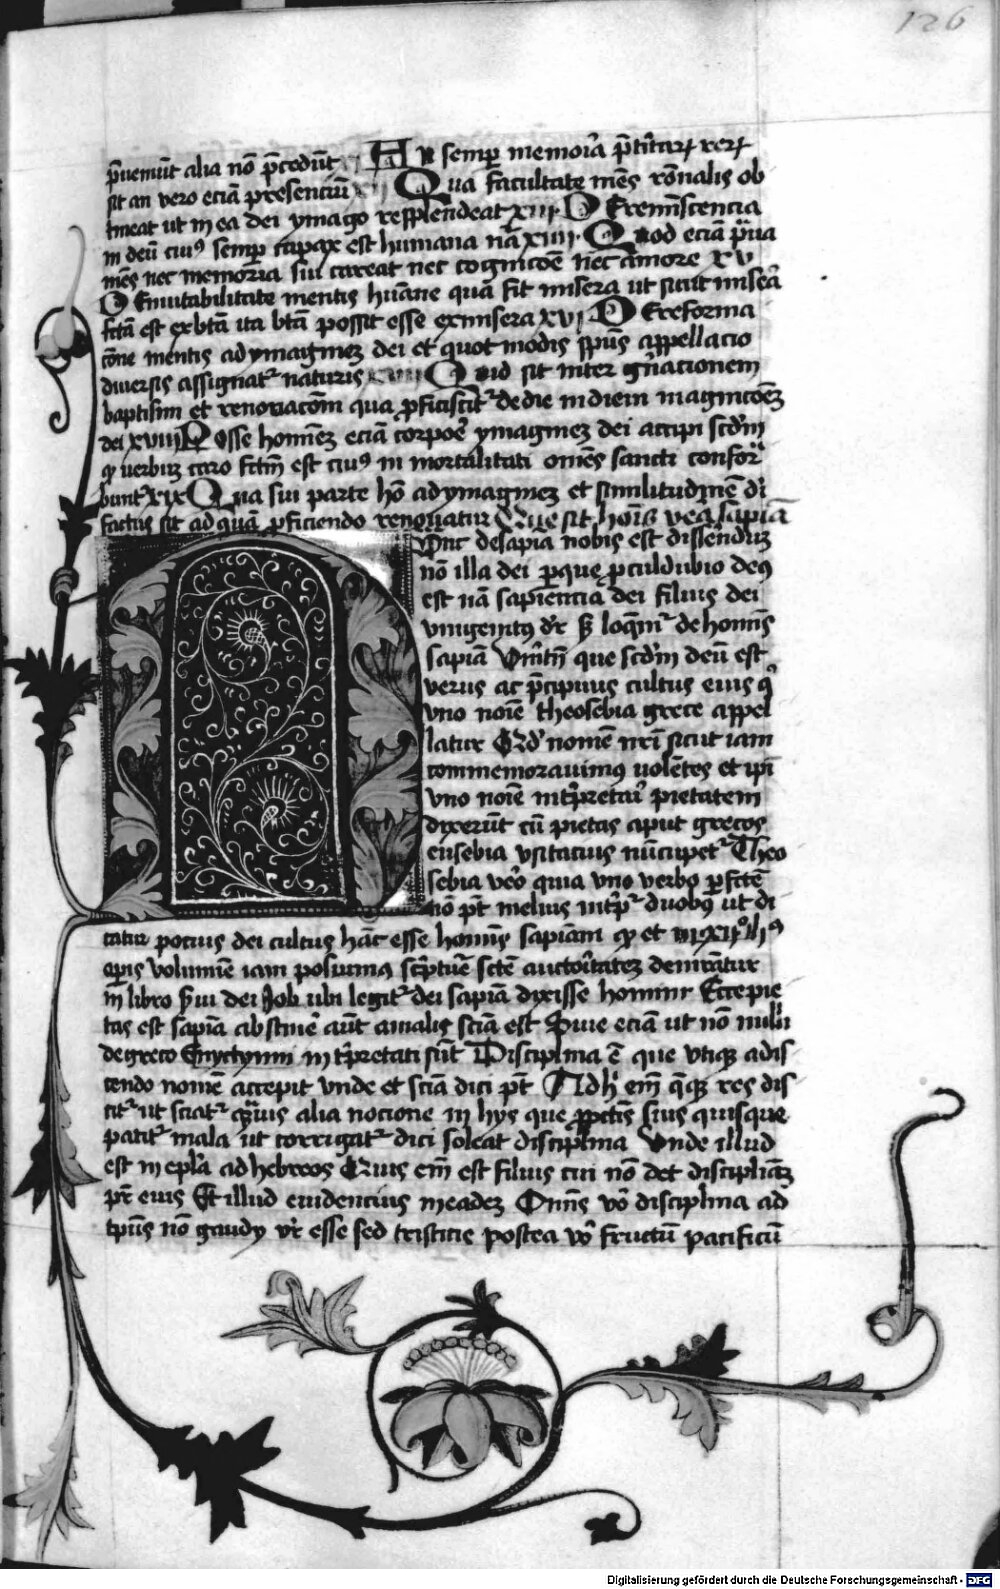 126
p̄uemūt alia nō p̄cedūt xi An semper memoīa p̄titaꝝ reꝝ
sit an vero eciā presenciū xii Qua facultate mēs rōnalis ob
tineat ut in ea dei ymago resplendeat xiii De reminiscencia
in deū cuiꝰ semꝑ capax est humana nāᷓ xiiii Quod eciā praua
mēs nec memoria sui careat nec cognicōe nec amore xv
De mutabilitate mentis hūāne quā fit misera ut sicut miseā
fctā est ex btā ita btā possit esse ex misera xvi De reforma
cōne mentis ad ymaginez dei et quot modis spūs appellacio
diuersis assignatᷣ naturis xvii Quid sit inter gn̄acionem
baptismi et renouacōm qua ꝓficiscitᷣ de die in diem in agnicōez
dei xviii Posse hominez eciā corpoē ymaginez dei accipi scd̄m
ꝙ verbuz caro fctm̄ est cuiꝰ in mortalitati om̄es sancti confor
bunt᷑ xix Qua sui parte hō ad ymaginez et similitudinē di
factus sit ad quā ꝓficiendo renouatur Que sit hoīs vera sapiā
Nunc de sapiā nobis est disserenduz
nō illa dei que procul dubio deꝰ
est nā sapiencia dei filius dei
vnigenitꝰ dr̄ sꝫ loqmᷣ de homīs
sapiā vm̄tn̄ que scd̄m deū est
verus ac p̄cipuus cultus eius q̄
vno noīe theosebia grece appel
latur Qd̄ nomē nr̄i sicut iam
commemorauimꝰ volētes et ip̄i
vno noīe int̄pretari pietatem
dixerūt cū pietas aput grecos
eusebia vsitacius nūcupetᷣ Theo
sebia vēo quia vno verbo ꝑfctē
nō pt̄ melius int̄pᷣ duobꝰ ut di
catur pocius dei cultus hāc esse homīs sapiām ꝙ et in xiiᵒ hꝰ
oꝑis volumīe iam posuimꝰ sc̄ptūe sct̄e auctoitatez demrātur
in libro s̄ui dei Job ubi legitᷣ dei sapiā dixisse homini Ecce pie
tas est sapiā abstinē aūt a malis sciā est Siue eciā ut nō nulli
de greco int̄pretati sūt Disciplina ē que vtiqꝫ a dis
cendo nomē accepit vnde et sciā dici pt̄ Ad h̄ em̄ q̄qꝫ res dis
citᷣ ut sciatᷣ quāuis alia nocione in hys que ꝓ pctīs suis quisque
patitᷣ mala ut corrigatᷣ dici soleat disciplina Vnde illud
est in epl̄a ad hebreos Quis em̄ est filius cui nō det disciplināz
pr̄ eius Et illud euidencius in eadez Omīs vō disciplina ad
tp̄us nō gaudy vr̄ esse sed tristicie postea vō fructū pacificū
Digitalisierung gefördert durch die Deutsche Forschungsgemeinschaft - DFG